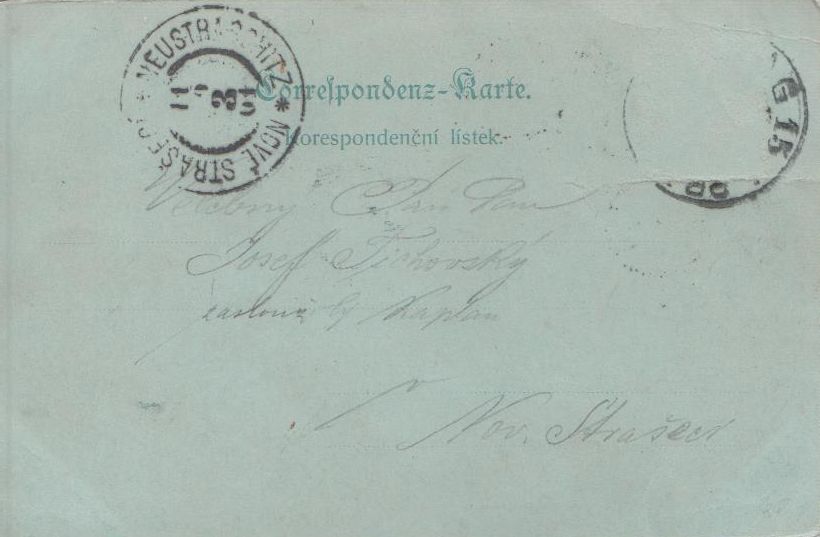 NEUSTRASCHITZ * NOVÉ STRAŠECÍ
11
3
01
Correspondenz-Karte.
Korespondenční lístek.
G 15
00
Velebný Pán Pan
Josef Tichovský
kaplan
v Nov. Strašecí